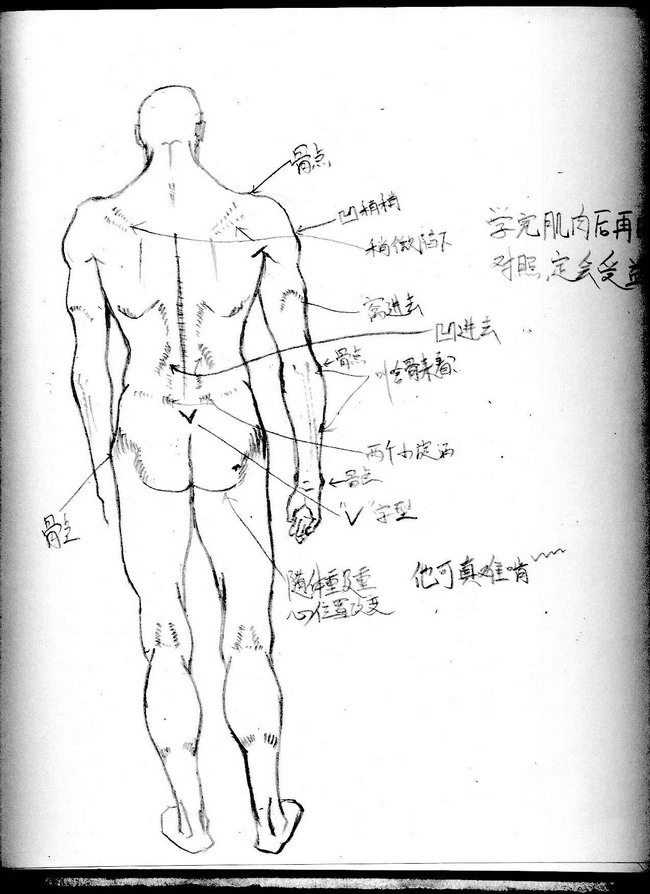 骨点
凹稍稍
稍微陷下
学完肌肉后再
对照,定会受益
窝进去
凹进去
骨点
两个小淀涡
骨点
"V"字型
骨点
随体重及重
心位置改变
他可真难啃